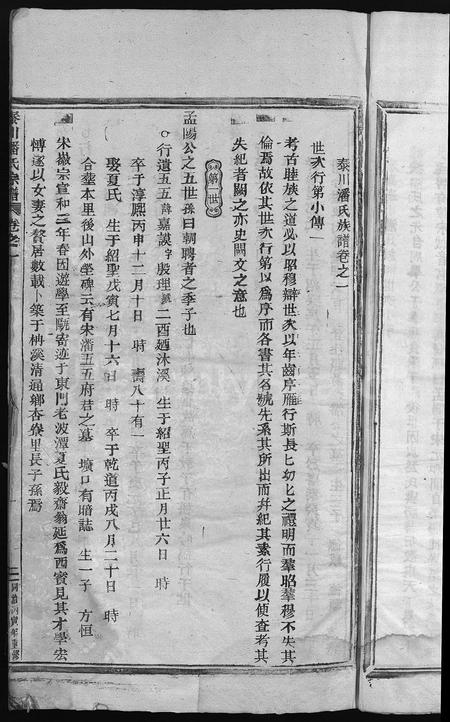 泰川潘氏族譜卷之一
世次行第小傳一
考古睦族之道必以昭穆辯世次以年齒序雁行斯長長幼幼之禮明而羣昭羣穆不失其
倫焉故依其世次行第以爲序而各書其名號先系其所出而幷紀其素行履以便查考其
失紀者闕之亦史闕文之意也
第一世
孟陽公之五世孫曰朝聘者之季子也
行遺五五諱嘉謨字殷理號二酉廼沐溪 生于紹聖丙子正月廿六日 時
卒于淳熙丙申十二月十日 時 壽八十有一
娶夏氏 生于紹聖戊寅七月十六日 時 卒于乾道丙戌八月二十日 時
合葬本里後山外塋碑云有宋潘五五府君之墓 壙口有暗誌 生一子 方恒
宋徽宗宣和三年春因遊學至 寄迹于東門老波潭夏氏毅齋翁延爲西賓見其才學宏
博遂以女妻之贅居數載卜築于柟溪清通鄉杏寮里長子孫焉
泰川潘氏宗譜 卷之一
二 同治丙寅年重修